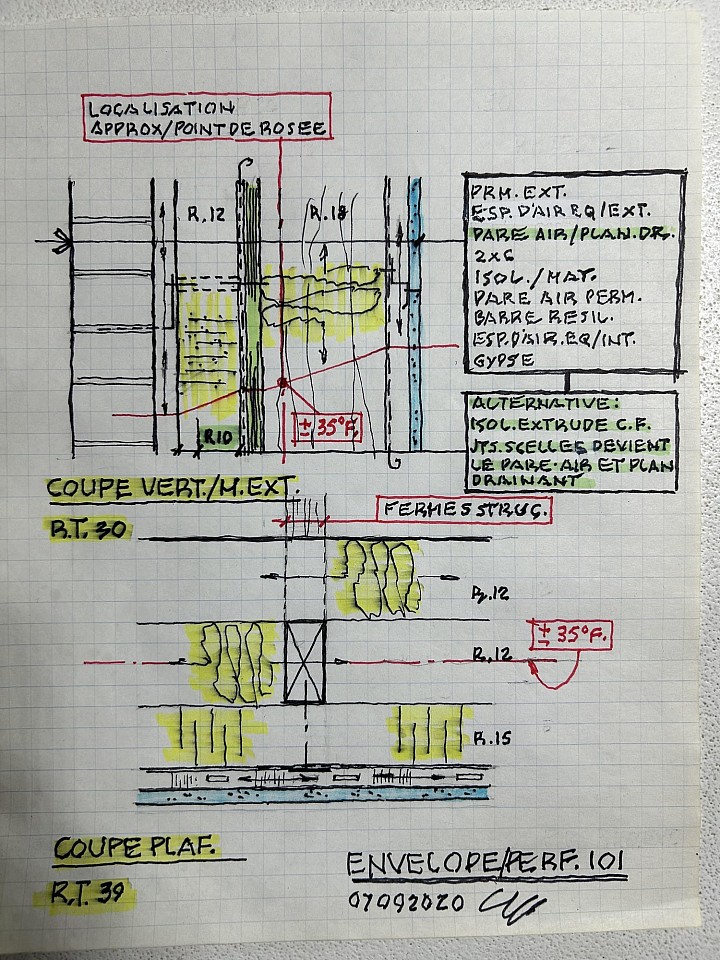 LOCALISATION
APPROX/POINT DE ROSEE
R.12
R.18
PRM. EXT.
ESP. D'AIR EQ/EXT.
PARE AIR/PLAN. DR.
2x6
ISOL./MAT.
PARE AIR PERM.
BARRE RESIL.
ESP. D'AIR. EQ/INT.
GYPSE
R10
± 35°F.
ALTERNATIVE:
ISOL. EXTRUDE C.F.
JTS. SCELLES DEVIENT
LE PARE-AIR ET PLAN
DRAINANT
COUPE VERT./M. EXT.
R.T. 30
FERMES STRUC.
R.12
± 35°F.
R.12
R.15
COUPE PLAF.
R.T. 39
ENVELOPE/PERF. 101
07092020